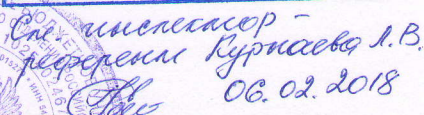 Ст. инспектор -
референт Курпаева Л.В.
06.02.2018